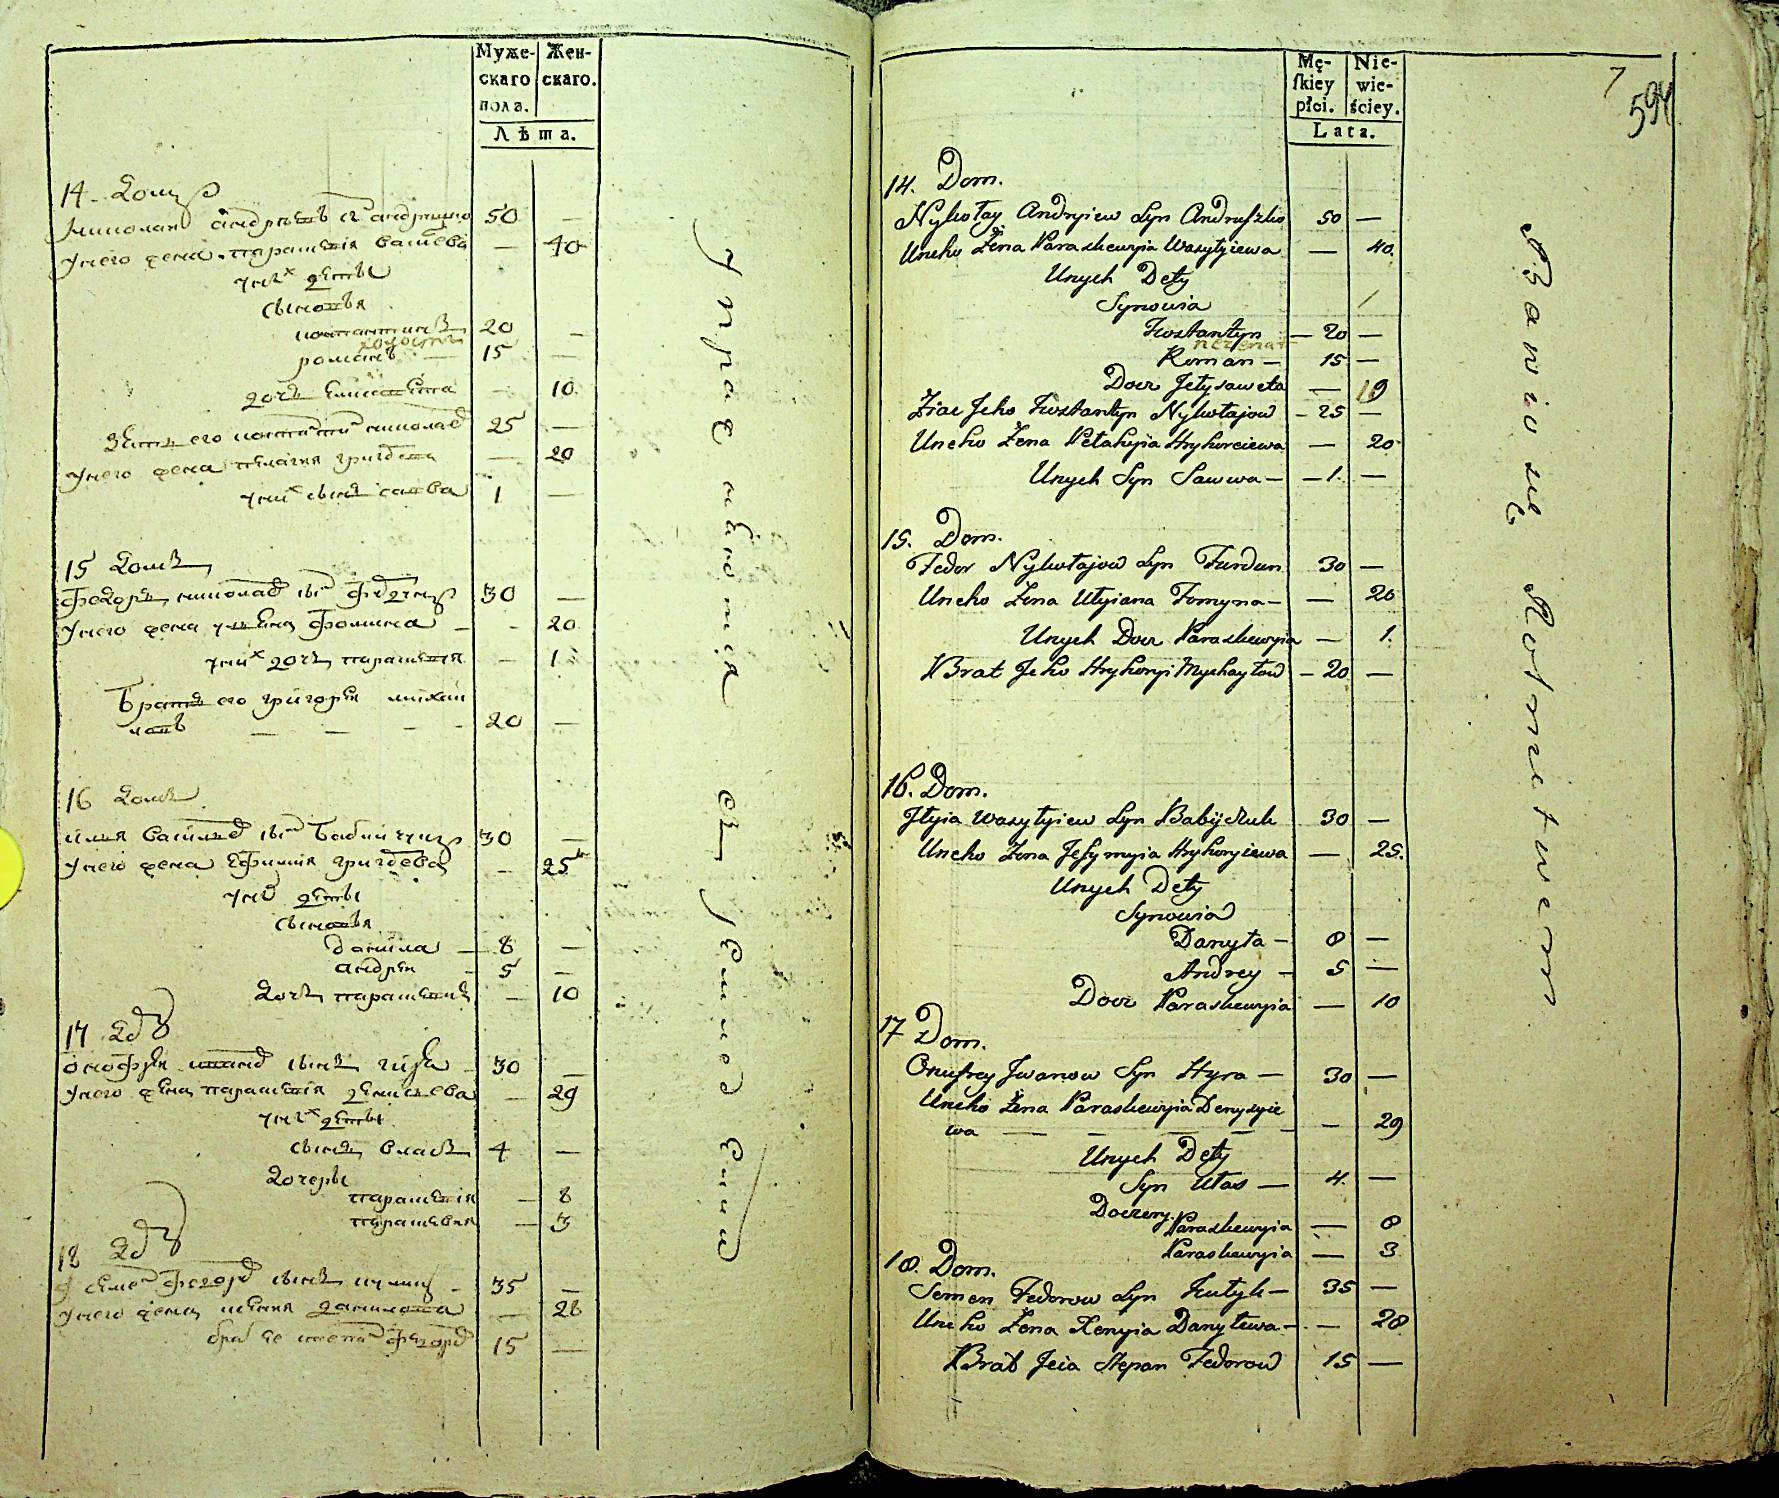 Муже-
скаго
пола.
Жен-
скаго.
Лѣта.
14. Домъ
Николай Андрѣевъ сы Андрушко 50 —
У него жена Параскевія Василева — 40
У них дѣти
Сыновья
Константинъ 20 —
холостъ
Романъ — 15 —
дочь Елисавета — 10
Зять его Константин Николаев 25 —
У него жена Пелагия Григорева — 20
У них сынъ Савва 1 —
15 Домъ
Федоръ Николаев сын 30 —
У него жена Ульяна Фомина — 20
У них дочь Параскевія — 1
Братъ его Григорѣй Михай
ловъ — — — — 20 —
16 Домъ
Илья Василев сын Бабийчукъ 30 —
У него жена Ефимия Григорева — 25
У них дѣти
Сыновья
Данила — 8 —
Андрей — 5 —
Дочь Параскевия — 10
17 Дом
Онофрѣй Иванов сынъ Гира 30 —
У него жена Параскевія Денисьева — 29
У них дѣти
сынъ Власъ 4 —
Дочеры
Параскевія — 8
Параскевия — 3
18 Дом
Семен Федоров сынъ 35 —
У него жена Ксения Данилова — 28
брат ее Степан Федоров 15 —
Mę-
ſkiey
płci.
Nie-
wie-
ściey.
Lata.
7
594
14. Dom.
Nykołay Andryiew Syn Andruszko 50 —
Uneho Żena Paraskewyia Wasylyiewa — 40.
Unych Dety
Synowia
Kostantyn — 20 —
nezenat
Roman — 15 —
Docz Jelysaweta — 10
Ziat Jeho Kostantyn Nykołajow — 25 —
Uneho Żena Pelahyia Hryhoreiewa — 20
Unych Syn Sawwa — 1. —
15. Dom.
Fedor Nykołajow Syn Furdun 30 —
Uneho Żena Ulyiana Fomyna — — 20
Unych Docz Paraskewyia — 1.
Brat Jeho Hryhoryi Mychayłow — 20 —
16. Dom.
Jlyia Wasylyiew Syn Babijczuk 30 —
Uneho Żona Jefymyia Hryhoryiewa — 25.
Unych Dety
Synowia
Danyła — 8 —
Andrey — 5 —
Docz Paraskewyia — 10
17 Dom.
Onufrey Jwanow Syn Hyra — 30 —
Uneho Żena Paraskewyia Denysyie
wa — — — — — — 29
Unych Dety
Syn Ułas — 4. —
Doczery.
Paraskewyia — 8
Paraskewyia — 3
18. Dom.
Semen Fedorow Syn Kutyk — 35 —
Uneho Żena Xenyia Danyłewa — — 28
Brat Jeia Stepan Fedorow 15 —